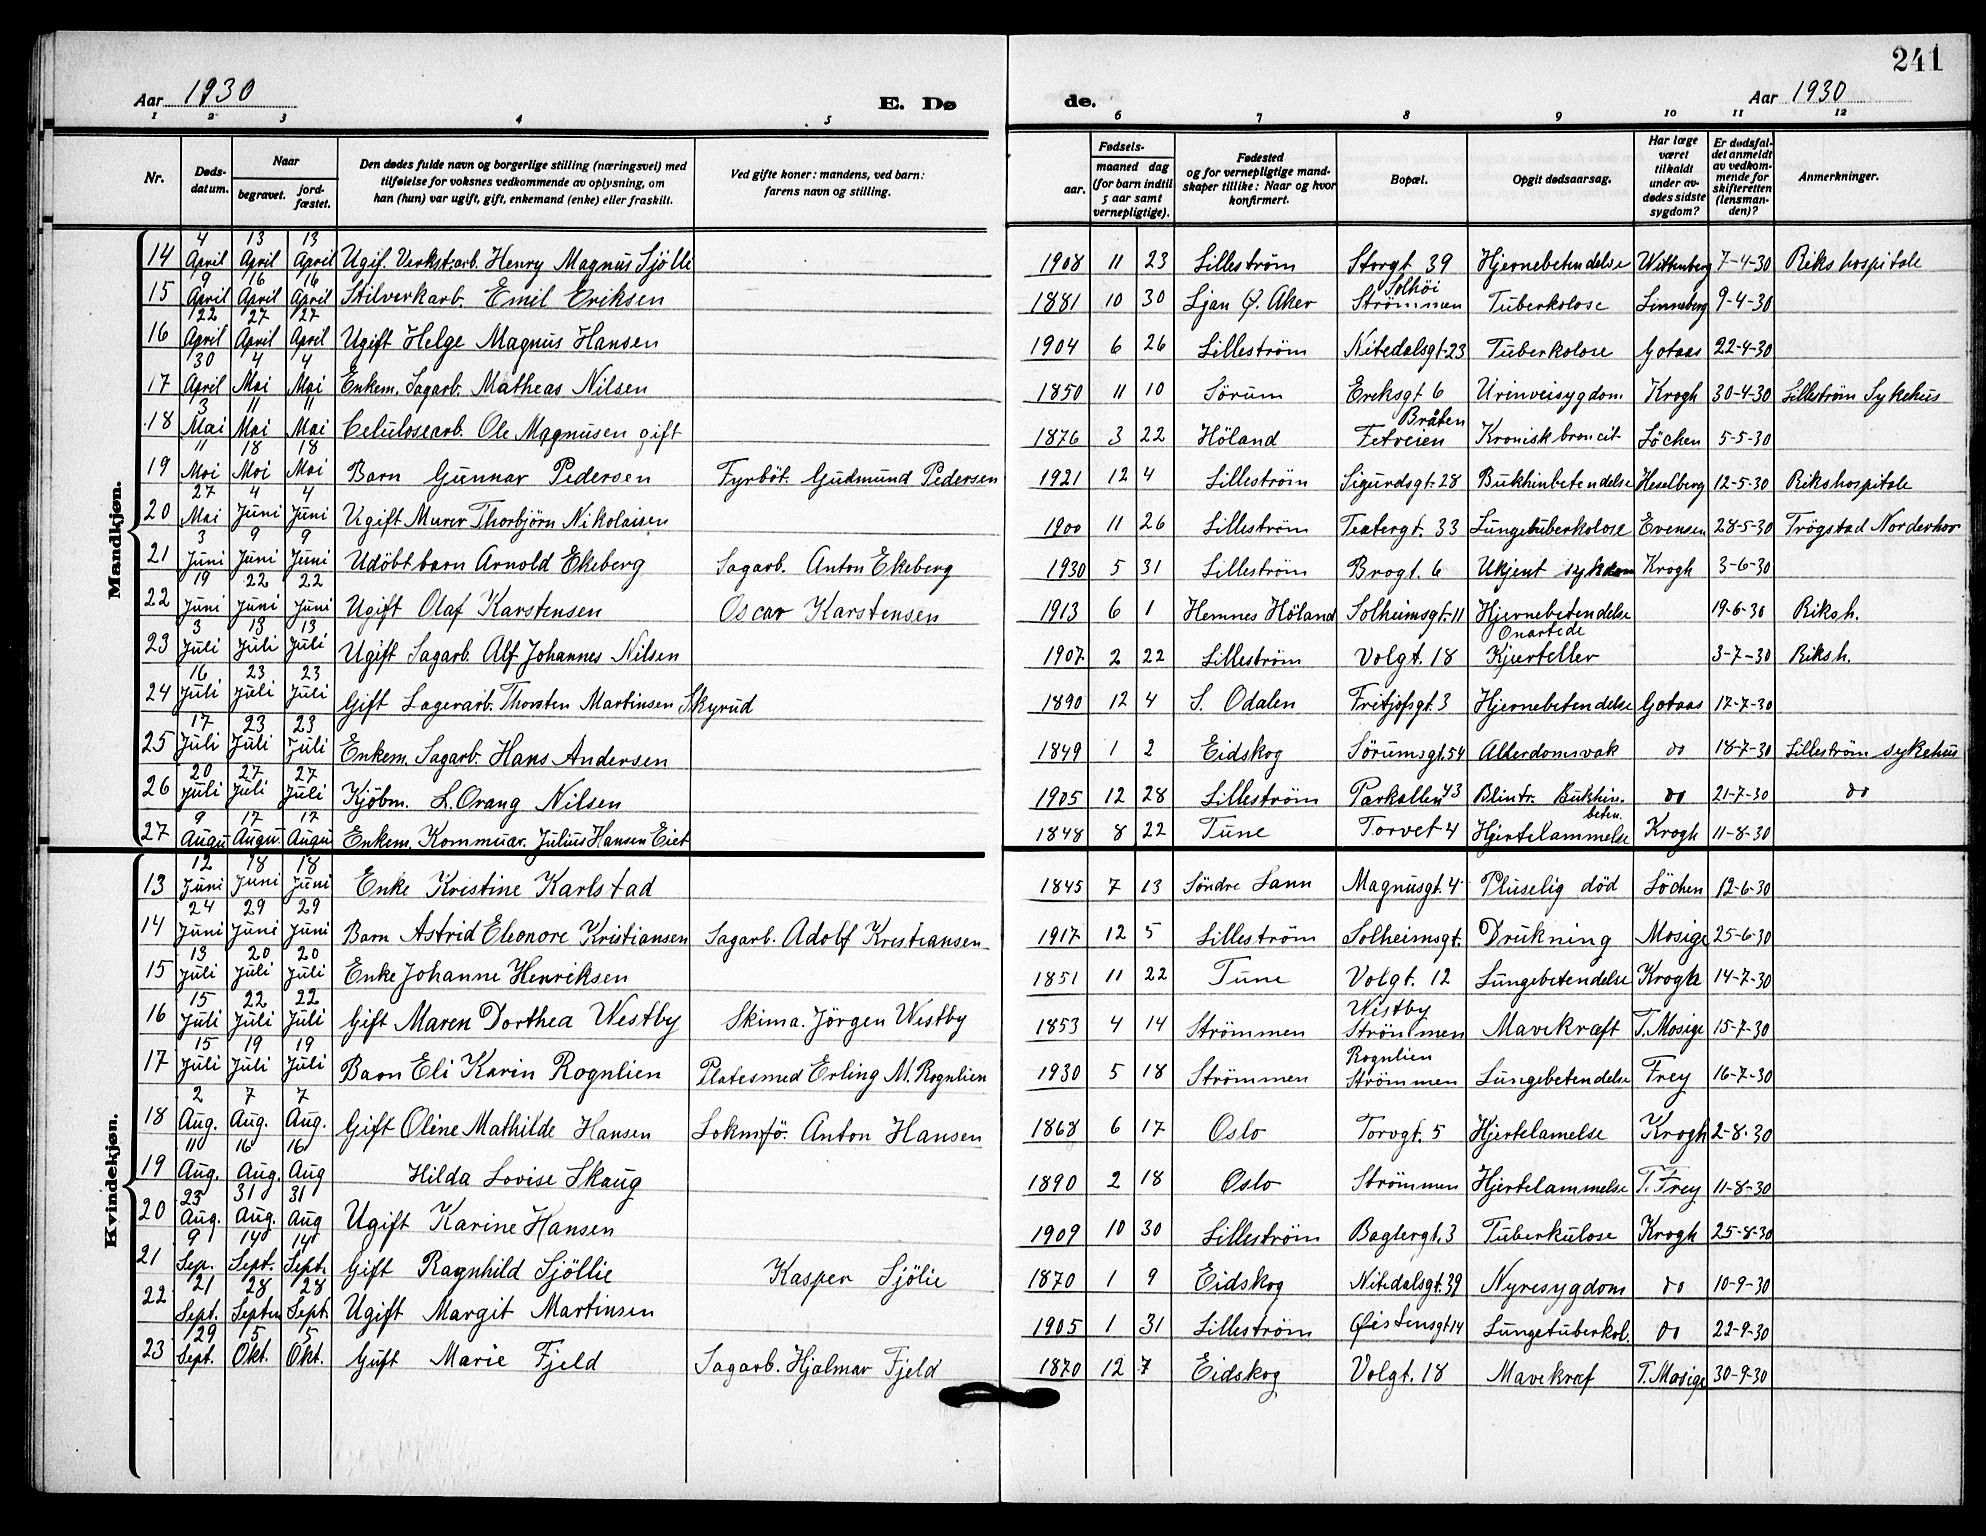 241
Aar 1930 E. Dø de. Aar 1930
1 2 3 4 5 6 7 8 9 10 11 12
Nr. Døds-datum. Naar begravet. jord-fæstet. Den dødes fulde navn og borgerlige stilling (næringsvei) med tilføielse for voksnes vedkommende av oplysning, om han (hun) var ugift, gift, enkemand (enke) eller fraskilt. Ved gifte koner: mandens, ved barn: farens navn og stilling. Fødsels- aar. maaned dag (for barn indtil 5 aar samt vernepligtige). Fødested og for vernepligtige mand-skaper tillike: Naar og hvor konfirmert. Bopæl. Opgit dødsaarsag. Har læge været tilkaldt under av-dødes sidste sygdom? Er dødsfal-det anmeldt av vedkom-mende for skifteretten (lensman-den)? Anmerkninger.
Mandkjøn.
14 4 April 13 April 13 April Ugif. Verkst.arb. Henry Magnus Sjölli 1908 11 23 Lilleström Storgt 39 Hjernebetendelse Wittenberg 7-4-30 Rikshospitale
15 9 April 16 April 16 April Stilverkarb. Emil Eriksen 1881 10 30 Ljan Ø. Aker Solhöi Strömmen Tuberkolose Linneberg 9-4-30
16 22 April 27 April 27 April Ugift Helge Magnus Hansen 1904 6 26 Lilleström Nitedalsgt-23 Tuberkolose Gotaas 22-4-30
17 30 April 4 Mai 4 Mai Enkem. Sagarb. Matheas Nilsen 1850 11 10 Sörum Ereksgt 6 Urinveisygdom Krogh 30-4-30 Lilleström Sykehus
18 3 Mai 11 Mai 11 Mai Celulosearb. Ole Magnusen gift 1876 3 22 Höland Bråten Fetveien Kronisk broncit Löchen 5-5-30
19 11 Mai 18 Mai 18 Mai Barn Gunnar Pedersen Fyrböt. Gudmund Pedersen 1921 12 4 Lilleström Sigurdsgt. 28 Bukhinbetendelse Heselberg 12-5-30 Rikshospitale
20 27 Mai 4 Juni 4 Juni Ugift Murer Thorbjörn Nikolaisen 1900 11 26 Lilleström Teatergt. 33 Lungetuberkolose Evensen 28-5-30 Trögstad Norderhov
21 3 Juni 9 Juni 9 Juni Udöbt barn Arnold Ekeberg Sagarb. Anton Ekeberg 1930 5 31 Lilleström Brogt. 6 Ukjent sykdom Krogh 3-6-30
22 19 Juni 22 Juni 22 Juni Ugift Olaf Karstensen Oscar Karstensen 1913 6 1 Hemnes Höland Solheimsgt-11 Hjernebetendelse 19-6-30 Riksh.
23 3 Juli 13 Juli 13 Juli Ugift Sagarb. Alf Johannes Nilsen 1907 2 22 Lilleström Volgt. 18 Onartede Kjærteller 3-7-30 Riksh.
24 16 Juli 23 Juli 23 Juli Gift Lagerarb. Thorsten Martinsen Skyrud 1890 12 4 S. Odalen Fritjofsgt. 3 Hjernebetendelse Gotaas 17-7-30
25 17 Juli 23 Juli 23 Juli Enkem. Sagarb. Hans Andersen 1849 1 2 Eidskog Sörumsgt. 54 Alterdomsvak do 18-7-30 Lilleström sykehus
26 20 Juli 27 Juli 27 Juli Kjöbm. L. Orang Nilsen 1905 12 28 Lilleström Parkallen 43 Blintr. Bukhin.beten. do 21-7-30 do
27 9 Augu 17 Augu. 17 Augu Enkem. Kommuar. Julius Hansen Eiet 1848 8 22 Tune Torvet 4 Hjertelammelse Krogh 11-8-30
Kvindekjøn.
13 12 Juni 18 Juni 18 Juni Enke Kristine Karlstad 1845 7 13 Söndre Sann Magnusgt. 4 Pluselig död Löchen 12-6-30
14 24 Juni 29 Juni 29 Juni Barn Astrid Eleonore Kristiansen Sagarb. Adolf Krestiansen 1917 12 5 Lilleström Solheimsgt. Drukning Mosige 25-6-30
15 13 Juli 20 Juli 20 Juli Enke Johanne Henriksen 1851 11 22 Tune Volgt. 12 Lungebetendelse Krogh 14-7-30
16 15 Juli 22 Juli 22 Juli Gift Maren Dorthea Westby Skima. Jörgen Westby 1853 4 14 Strömmen Westby Strömmen Mavekræft T. Mosige 15-7-30
17 15 Juli 19 Juli 19 Juli Barn Eli Karin Rognlien Platesmed Erling M. Rognlien 1930 5 18 Strömmen Rognlien Strömmen Lungebetendelse Frey 16-7-30
18 2 Aug. 7 Aug. 7 Aug. Gift Oline Mathilde Hansen Lokmfö. Anton Hansen 1868 6 17 Oslo Torvgt. 5 Hjertelamelse Krogh 2-8-30
19 11 Aug. 16 Aug. 16 Aug Hilda Lovise Skaug 1890 2 18 Oslo Strömmen Hjertelammelse T. Frey 11-8-30
20 23 Aug. 31 Aug. 31 Aug Ugift Karine Hansen 1909 10 30 Lilleström Baglergt. 3 Tuberkulose Krogh 25-8-30
21 9 Sep. 14 Sept. 14 Sept. Gift Ragnhild Sjöllie Kasper Sjölie 1870 1 9 Eidskog Nitedalsgt. 39 Nyresygdom do 10-9-30
22 21 Sept. 28 Septem 28 Sept. Ugift Margit Martinsen 1905 1 31 Lilleström Øistensgt 14 Lungetuberkol. do 22-9-30
23 29 Sept. 5 Okt. 5 Okt. Gift Marie Fjeld Sagarb. Hjalmar Fjeld 1870 12 7 Eidskog Volgt. 18 Mavekræf T. Mosige 30-9-30